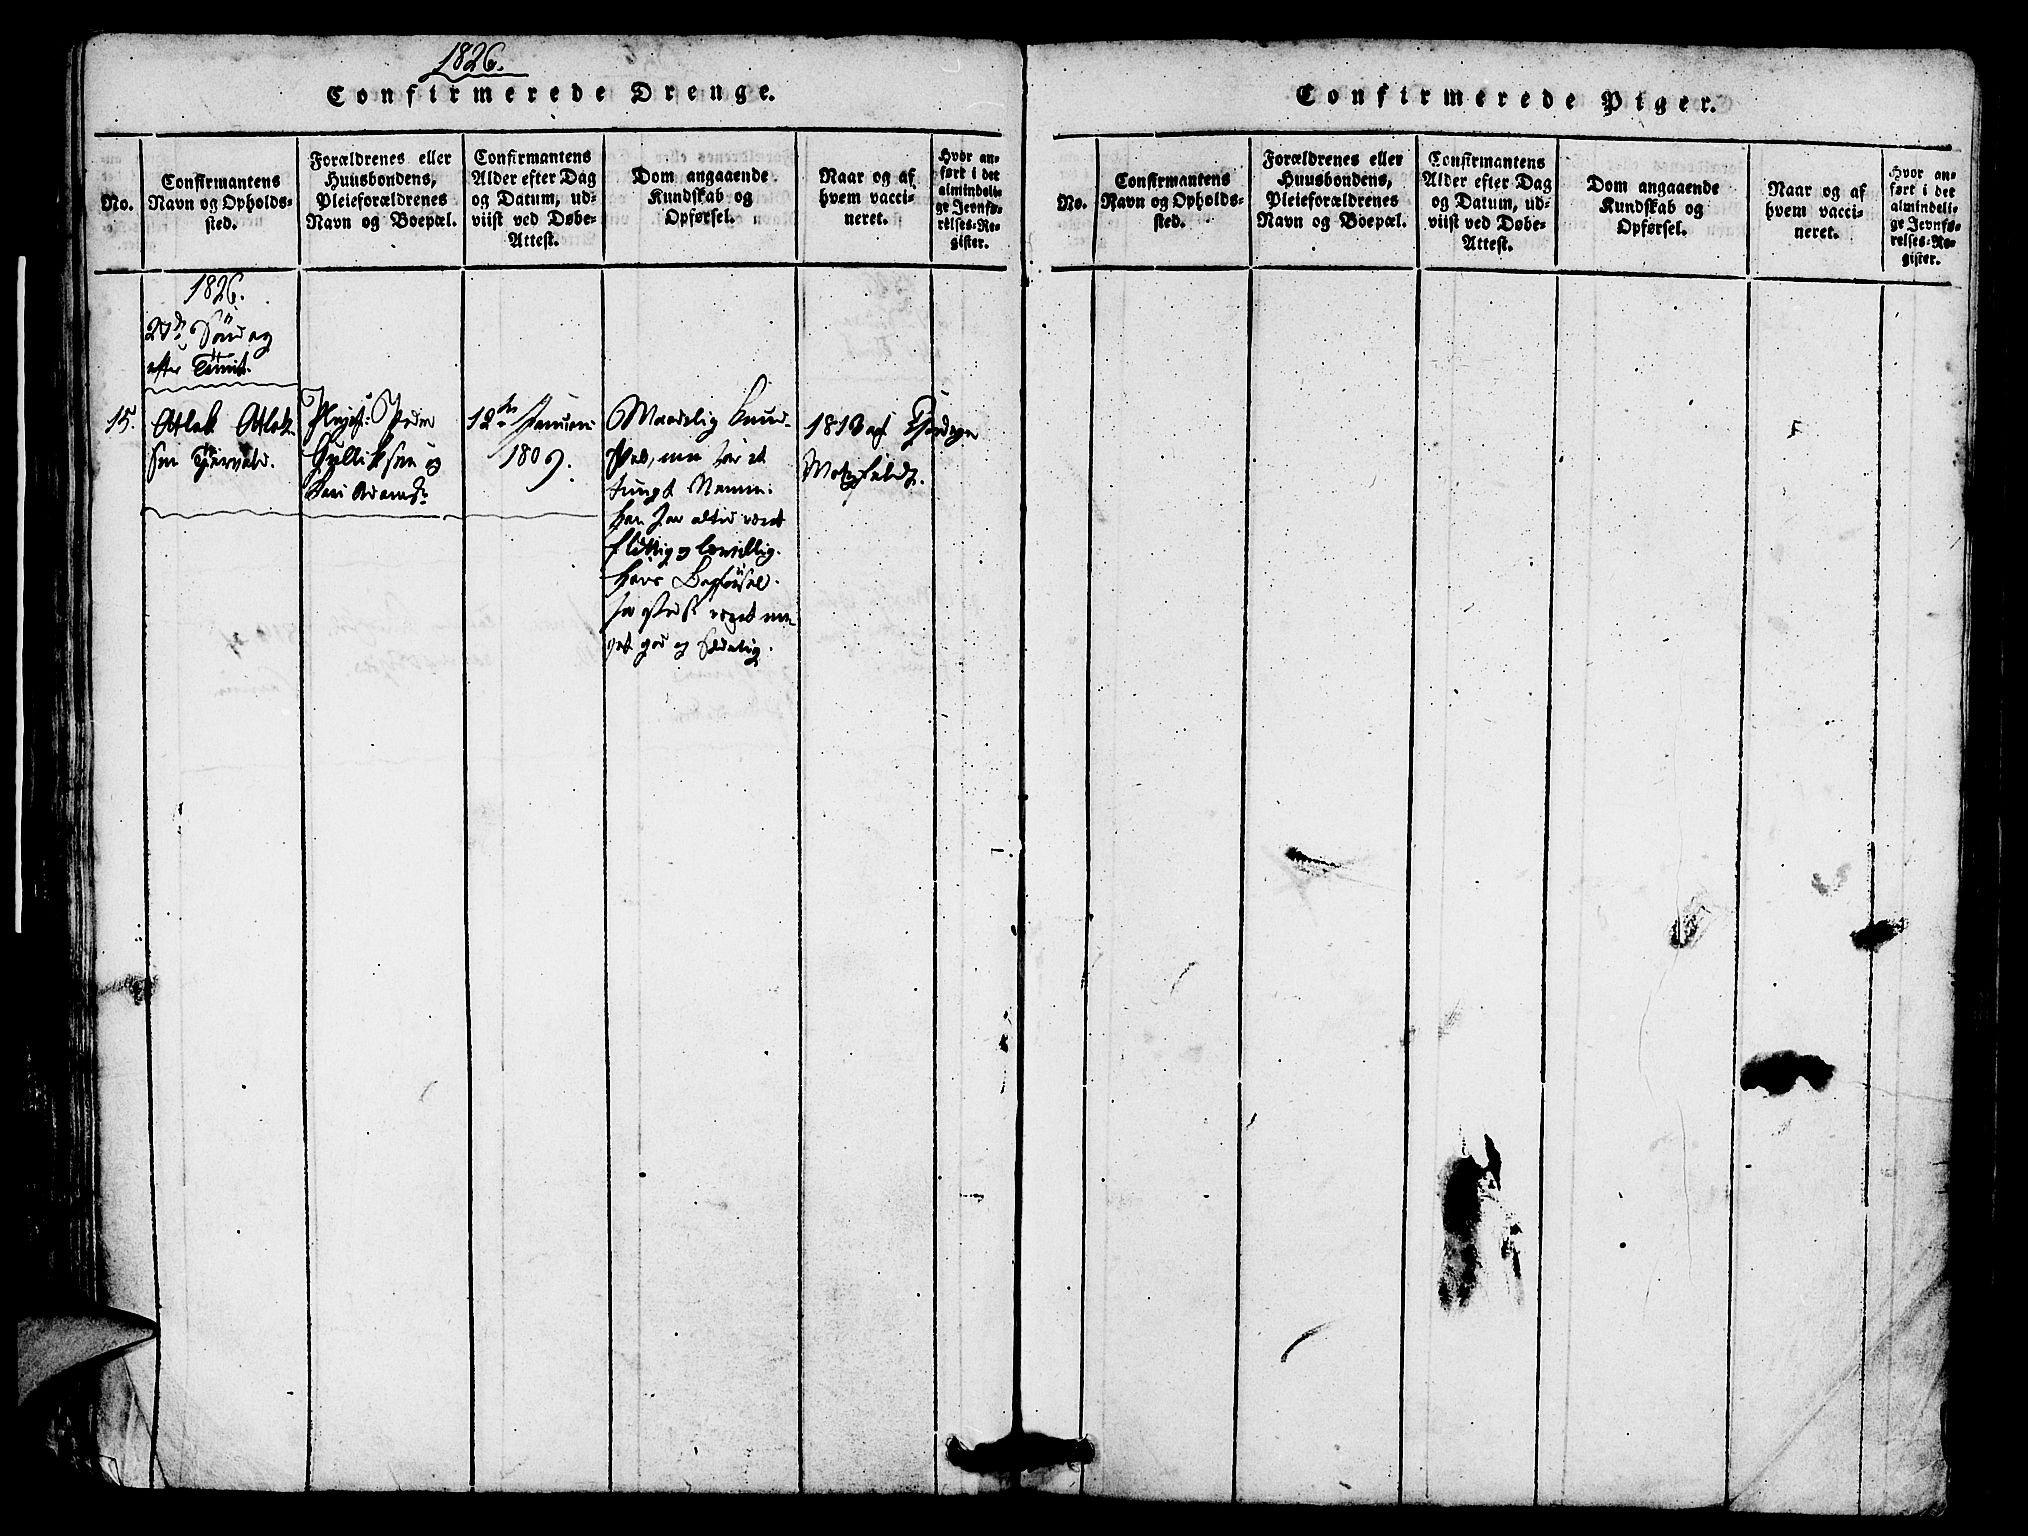 1826.
Confirmerede Drenge.
No.
Confirmantens
Navn og Opholds-
sted.
Forældrenes eller
Huusbondens,
Pleieforældrenes
Navn og Boepæl.
Confirmantens
Alder efter Dag
og Datum, ud-
viist ved Døbe-
Attest.
Dom angaaende
Kundskab og
Opførsel.
Naar og af
hvem vacci-
neret.
Hvor an-
ført i det
almindeli-
ge Jevnfø-
relses-Re-
gister.
1826.
Söndag
efter
15.
Atlak Atlak-
sen
Plejef: Peder
Gulliksen og
12te Januari
1809.
Maadelig Kund-
skab, men har et
tungt Nemme.
han har altid været
flittig og lærvillig.
hans Opförsel
har og været me-
get god og sædelig.
af
Confirmerede Piger.
No.
Confirmantens
Navn og Opholds-
sted.
Forældrenes eller
Huusbondens,
Pleieforældrenes
Navn og Boepæl.
Confirmantens
Alder efter Dag
og Datum, ud-
viist ved Døbe-
Attest.
Dom angaaende
Kundskab og
Opførsel.
Naar og af
hvem vacci-
neret.
Hvor an-
ført i det
almindeli-
ge Jevnfø-
relses-Re-
gister.